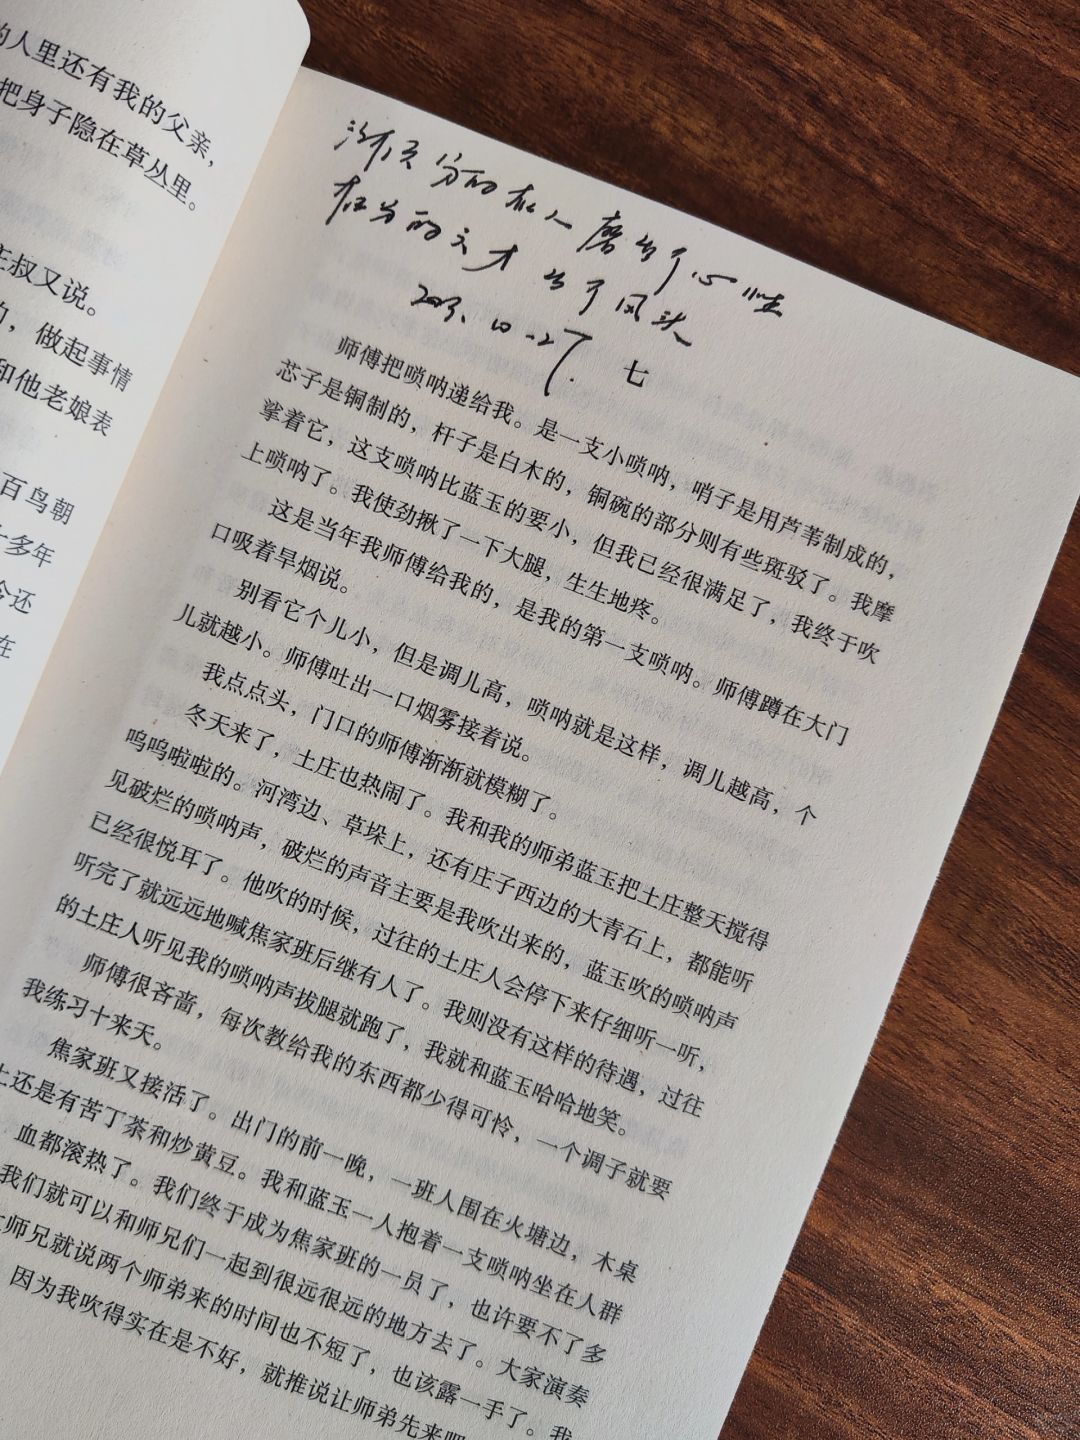 的人里还有我的父亲，
把身子隐在草丛里。
庄叔又说。
的，做起事情
和他老娘表
百鸟朝
十多年
今还
在
没天分的在人磨出了心性
有天分的天才出了风头
10.27
七
师傅把唢呐递给我。是一支小唢呐，哨子是用芦苇制成的，
芯子是铜制的，杆子是白木的，铜碗的部分则有些斑驳了。我摩
挲着它，这支唢呐比蓝玉的要小，但我已经很满足了，我终于吹
上唢呐了。我使劲揪了一下大腿，生生地疼。
这是当年我师傅给我的，是我的第一支唢呐。师傅蹲在大门
口吸着旱烟说。
别看它个儿小，但是调儿高，唢呐就是这样，调儿越高，个
儿就越小。师傅吐出一口烟雾接着说。
我点点头，门口的师傅渐渐就模糊了。
冬天来了，土庄也热闹了。我和我的师弟蓝玉把土庄整天搅得
呜呜啦啦的。河湾边、草垛上，还有庄子西边的大青石上，都能听
见破烂的唢呐声，破烂的声音主要是我吹出来的，蓝玉吹的唢呐声
已经很悦耳了。他吹的时候，过往的土庄人会停下来仔细听一听，
听完了就远远地喊焦家班后继有人了。我则没有这样的待遇，过往
的土庄人听见我的唢呐声拔腿就跑了，我就和蓝玉哈哈地笑。
师傅很吝啬，每次教给我的东西都少得可怜，一个调子就要
我练习十来天。
焦家班又接活了。出门的前一晚，一班人围在火塘边，木桌
上还是有苦丁茶和炒黄豆。我和蓝玉一人抱着一支唢呐坐在人群
血都滚热了。我们终于成为焦家班的一员了，也许要不了多
我们就可以和师兄们一起到很远很远的地方去了。大家演奏
师兄就说两个师弟来的时间也不短了，也该露一手了。我
因为我吹得实在是不好，就推说让师弟先来吧